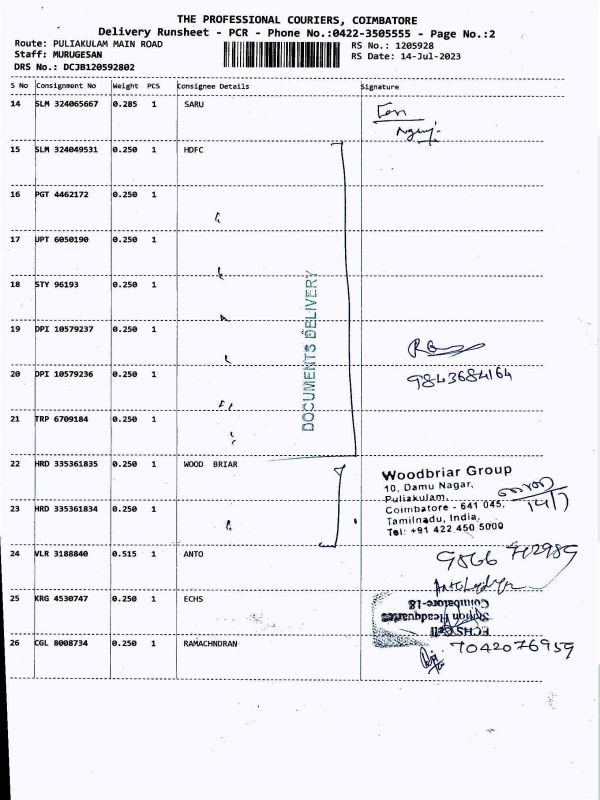 THE PROFESSIONAL COURIERS, COIMBATORE
Delivery Runsheet - PCR - Phone No.:0422-3505555 - Page No.:2
Route: PULIAKULAM MAIN ROAD RS No.: 1205928
Staff: MURUGESAN RS Date: 14-Jul-2023
DRS No.: DCJB120592802
S No Consignment No Weight PCS Consignee Details Signature
14 SLM 324065667 0.285 1 SARU
15 SLM 324049531 0.250 1 HDFC
16 PGT 4462172 0.250 1
17 UPT 6050190 0.250 1
18 STY 96193 0.250 1
19 DPI 10579237 0.250 1
20 DPI 10579236 0.250 1 9843684164
21 TRP 6709184 0.250 1
DOCUMENTS DELIVERY
22 HRD 335361835 0.250 1 WOOD BRIAR
Woodbriar Group
10, Damu Nagar,
Puliakulam,
23 HRD 335361834 0.250 1
Coimbatore - 641 045, 14/7
Tamilnadu, India.
Tel: +91 422 450 5000
24 VLR 3188840 0.515 1 ANTO
25 KRG 4530747 0.250 1 ECHS
ECHS Cell
Station Headquarter
Coimbatore-18
26 CGL 8008734 0.250 1 RAMACHNDRAN 7042076959